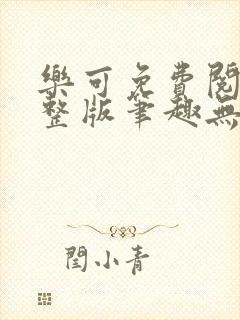 樂可免費閱
整版筆趣無
閆小青